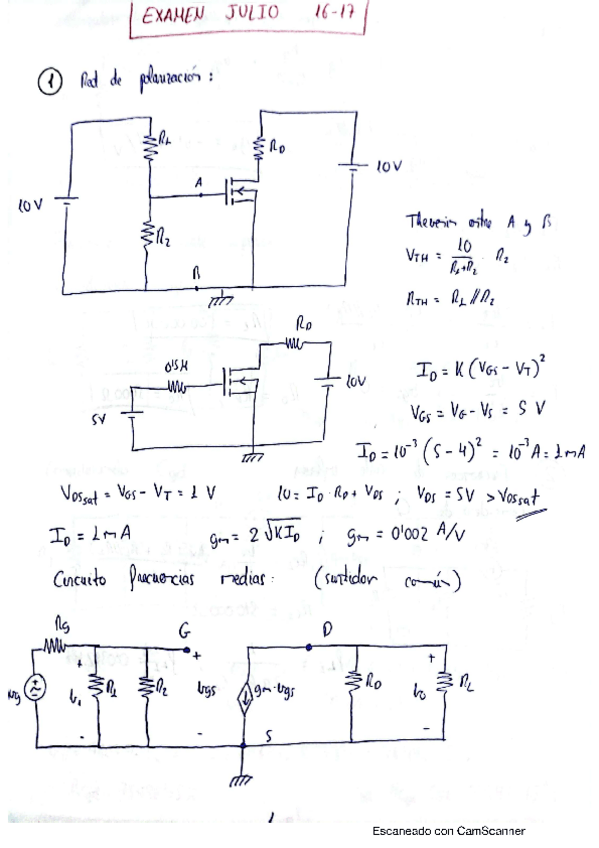 EXAMEN JULIO 16-17
1 Red de polarización:
R1
RD
A
10V
10V
R2
B
Thevenin entre A y B
VTH = 10 / R1+R2 · R2
RTH = R1 // R2
RD
0'5M
10V
5V
ID = K (VGS - VT)²
VGS = VG - VS = 5 V
ID = 10⁻³ (5 - 4)² = 10⁻³ A = 1mA
VDSsat = VGS - VT = 1 V
10 = ID · RD + VDS ; VDS = 5V > VDSsat
ID = 1mA
gm = 2 √KID ; gm = 0'002 A/V
Circuito frecuencias medias: (surtidor común)
Rg
G
D
vg
+
vi
-
R1
R2
+
vgs
-
gm·vgs
S
RD
+
vo
-
RL
1
Escaneado con CamScanner